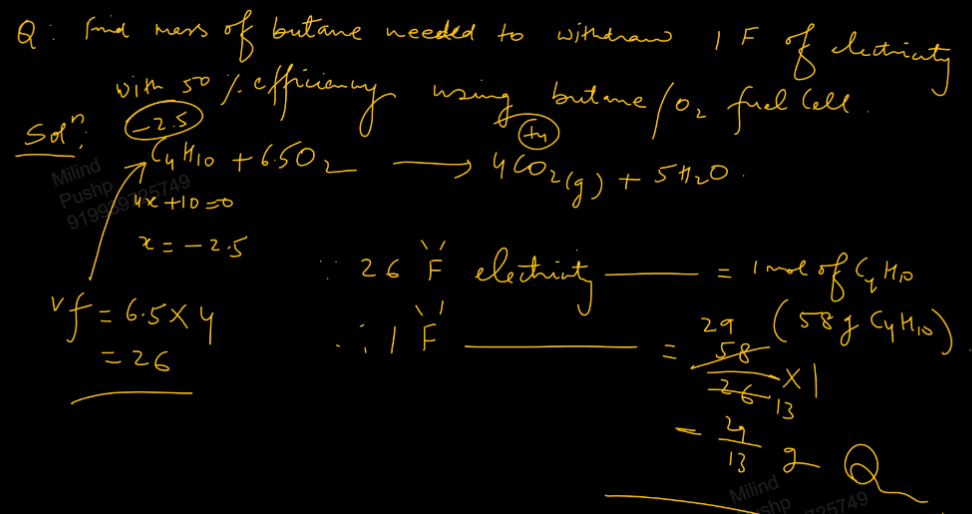 Q: Find mass of butane needed to withdraw 1 F of electricity
with 50 % efficiency using butane/O2 fuel cell.
Solⁿ:
-2.5
+4
C4H10 + 6.5O2 → 4CO2(g) + 5H2O.
4x+10=0
x = -2.5
vf = 6.5×4
= 26
∵ 26 "F" electricity = 1 mol of C4H10
(58 g C4H10)
∴ 1 "F" = 58/26 × 1
29
13
= 29/13 g
Milind
Pushp
919939725749
Milind